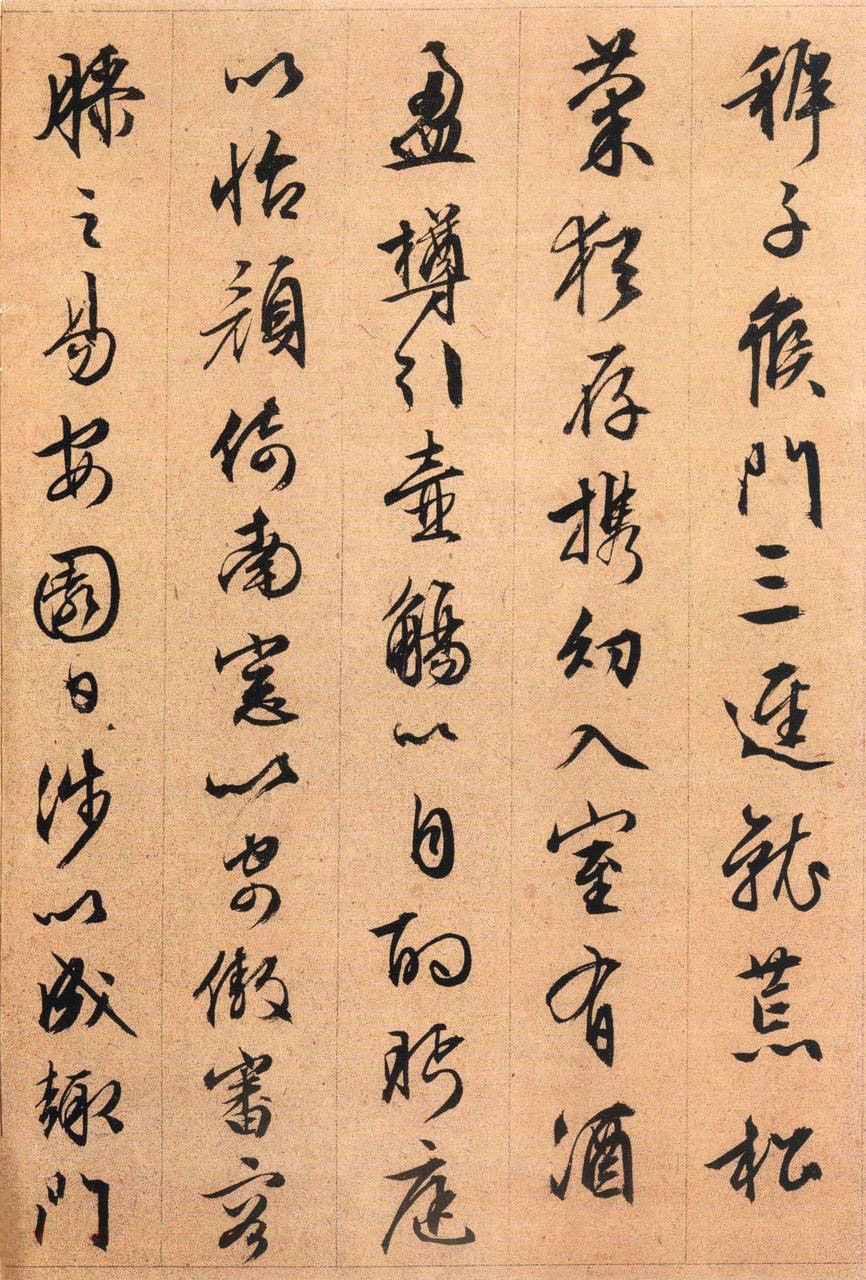 穉子候門三逕就荒松
菊猶存携幼入室有酒
盈樽引壺觴以自酌眄庭
以怡顏倚南窓以寄傲審容
膝之易安園日涉以成趣門